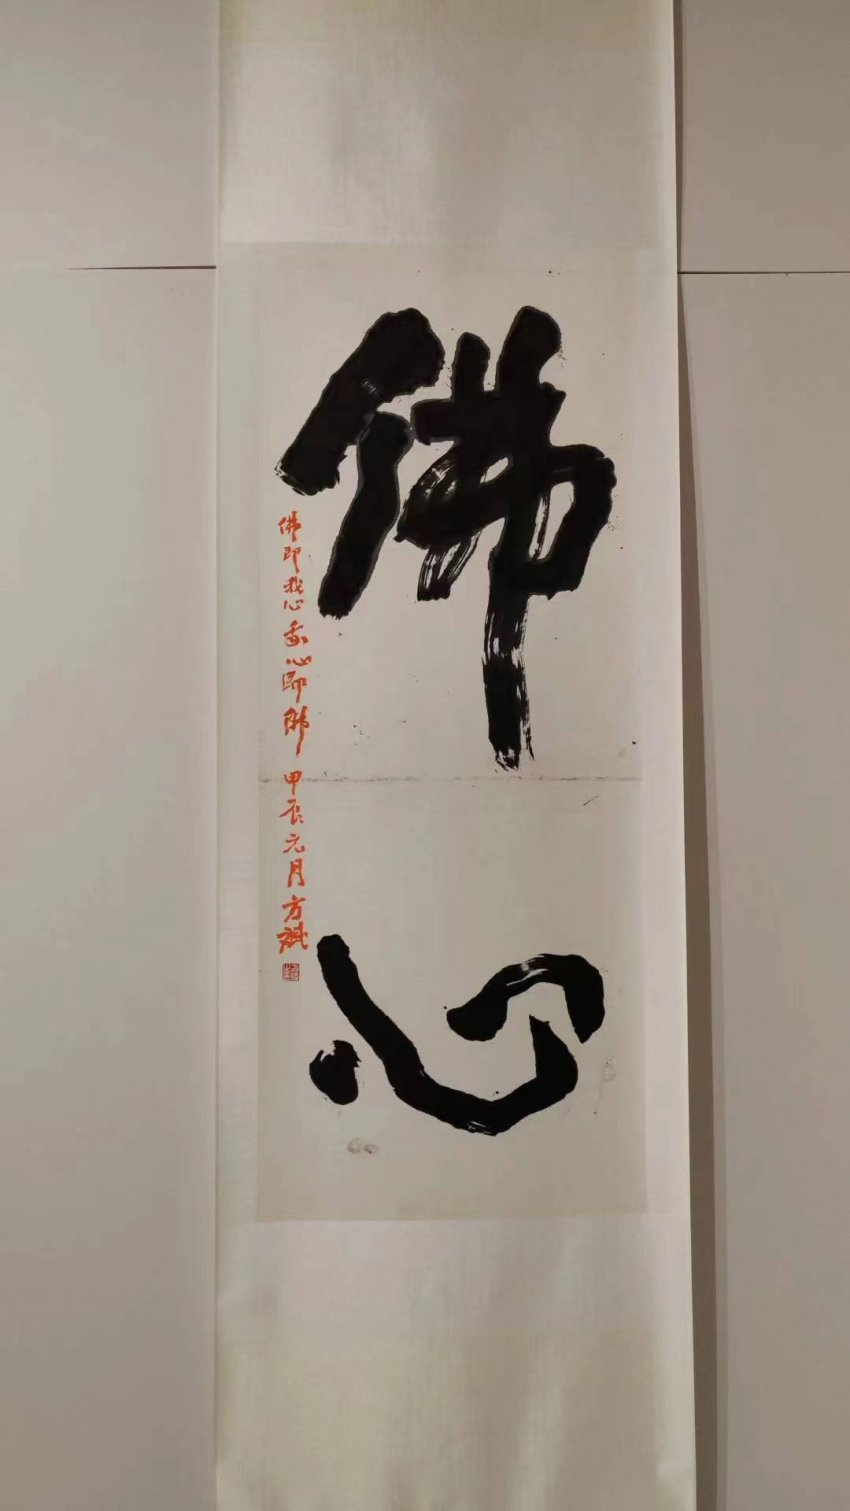 佛心
佛即我心我心即佛 甲辰元月方斌